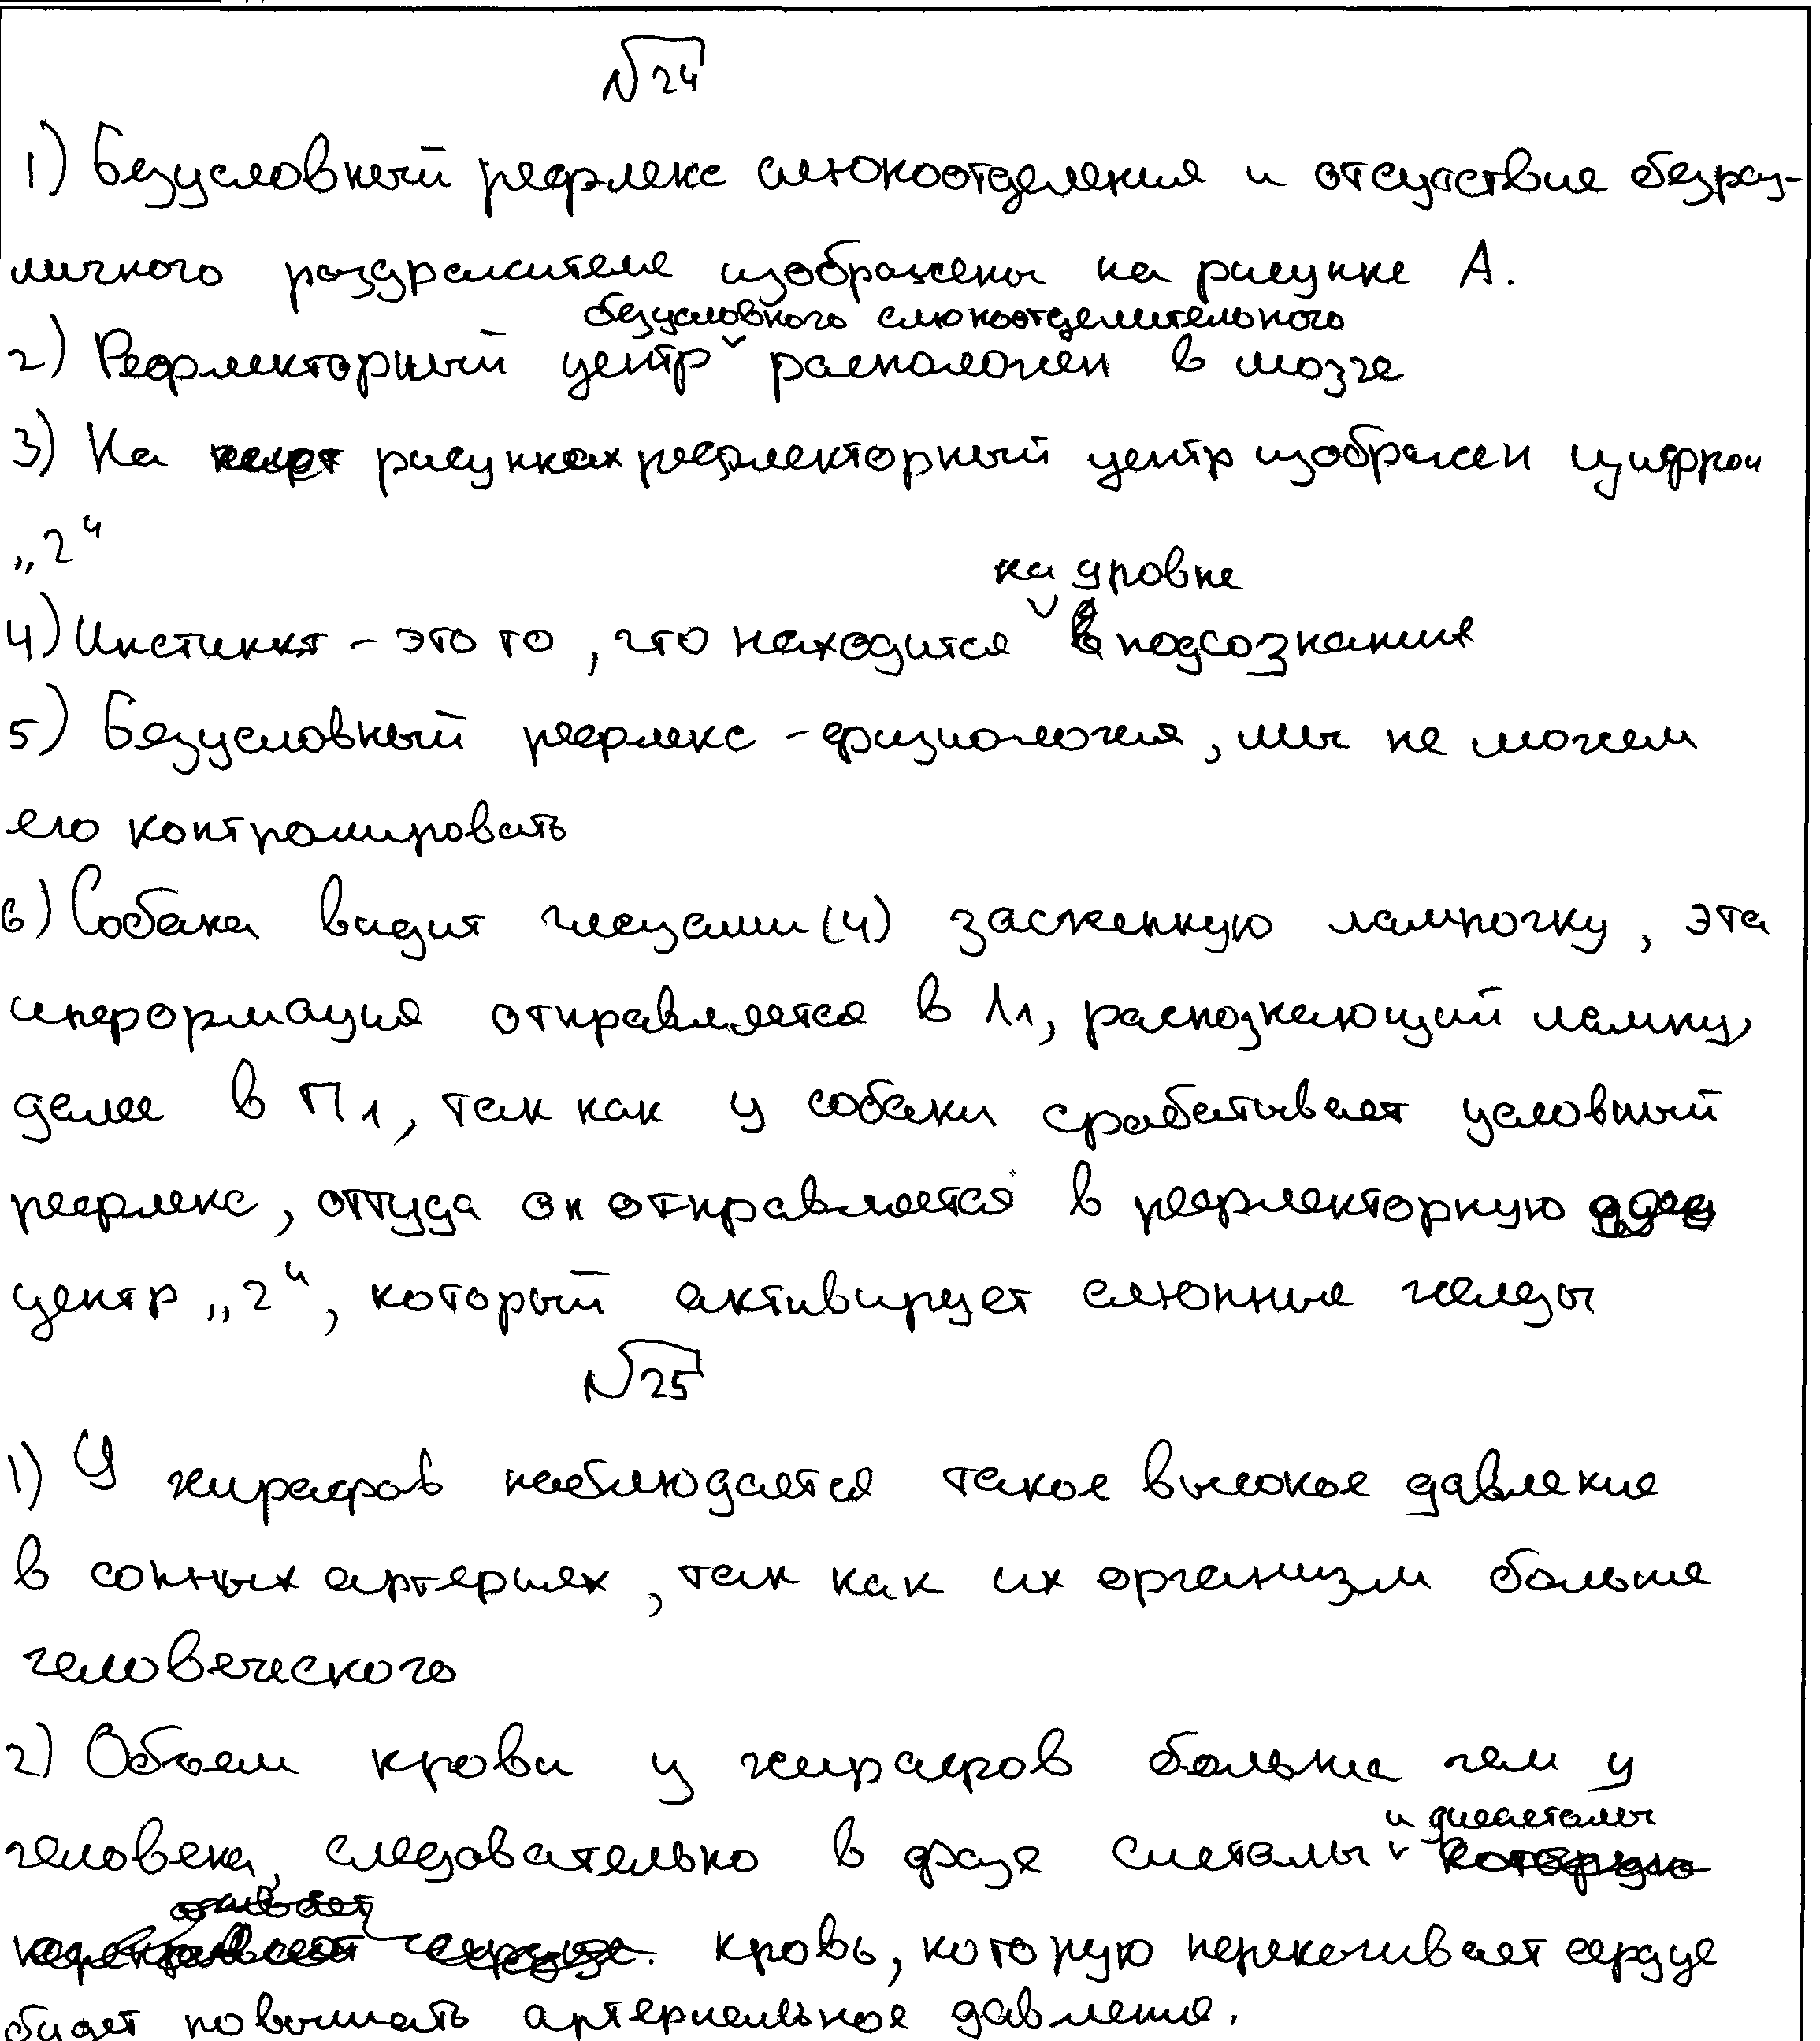 №24
1) Безусловный рефлекс слюноотделения и отсутствие безраз-
личного раздражителя изображены на рисунке А.
безусловного слюноотделительного
2) Рефлекторный центр ˅ расположен в мозге
3) На рисунках рефлекторный центр изображен цифрой
„2“
на уровне
4) Инстинкт - это то, что находится ˅ подсознания
5) Безусловный рефлекс - физиология, мы не можем
его контролировать
6) Собака видит глазами (4) зажженную лампочку, эта
информация отправляется в Л1, распознающий лампу,
далее в П1, так как у собаки срабатывает условный
рефлекс, оттуда он отправляется в рефлекторную
центр „2“, который активирует слюнные железы
№25
1) У жирафов наблюдается такое высокое давление
в сонных артериях, так как их организм больше
человеческого
2) Объем крови у жирафов больше чем у
и диастолы
человека, следовательно в фазе систолы ˅
кровь, которую перекачивает сердце
будет повышать артериальное давление.